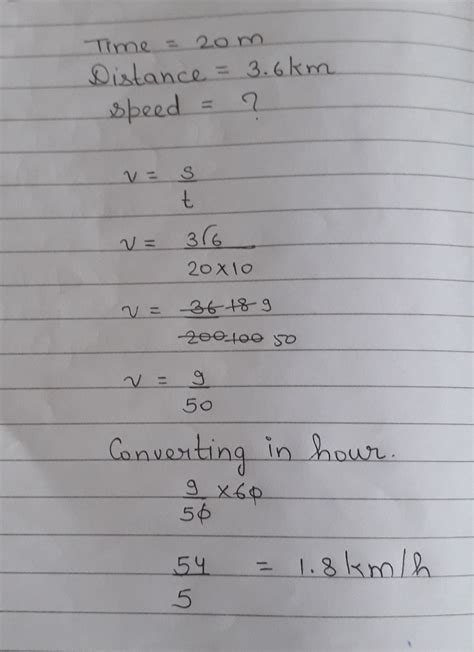 Time = 20m
Distance = 3.6km
speed = ?
v = s/t
v = 36/20×10
v = 36 18 9/200 100 50
v = 9/50
Converting in hour.
9/50 ×60
54/5 = 1.8km/h